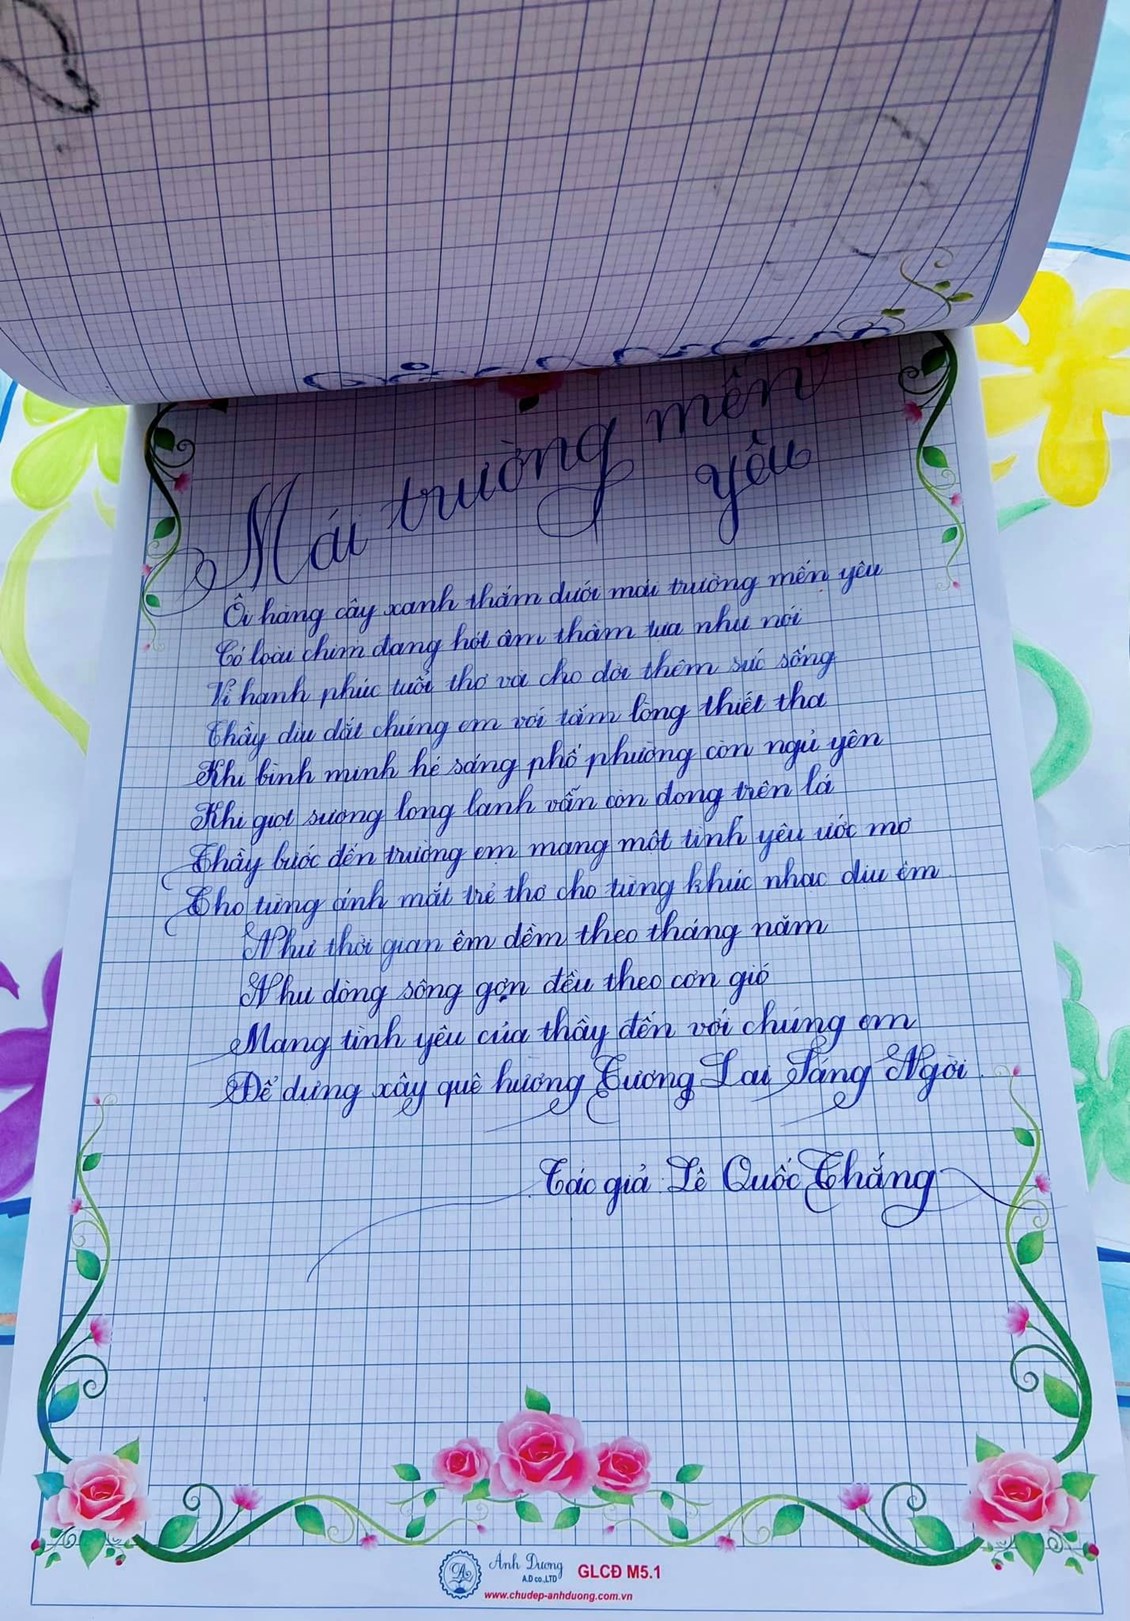 Mái trường mến
yêu
Ôi hàng cây xanh thắm dưới mái trường mến yêu
Có loài chim đang hót âm thầm tựa như nói
Vì hạnh phúc tuổi thơ và cho đời thêm sức sống
Thầy dìu dắt chúng em với tấm lòng thiết tha
Khi bình minh hé sáng phố phường còn ngủ yên
Khi giọt sương long lanh vẫn còn đọng trên lá
Thầy bước đến trường em mang một tình yêu ước mơ
Cho từng ánh mắt trẻ thơ cho từng khúc nhạc dịu êm
Như thời gian êm đềm theo tháng năm
Như dòng sông gợn đều theo cơn gió
Mang tình yêu của thầy đến với chúng em
Để dựng xây quê hương Tương Lai Sáng Ngời.
Tác giả Lê Quốc Thắng
Ánh Dương
A.D co.,LTD
GLCĐ M5.1
www.chudep-anhduong.com.vn